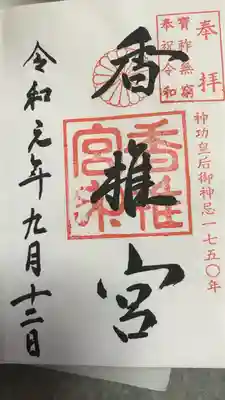 奉拝
寳祚無窮
奉祝令和
神功皇后御神忌一七五〇年
香椎宮
香椎宮
令和元年九月十二日